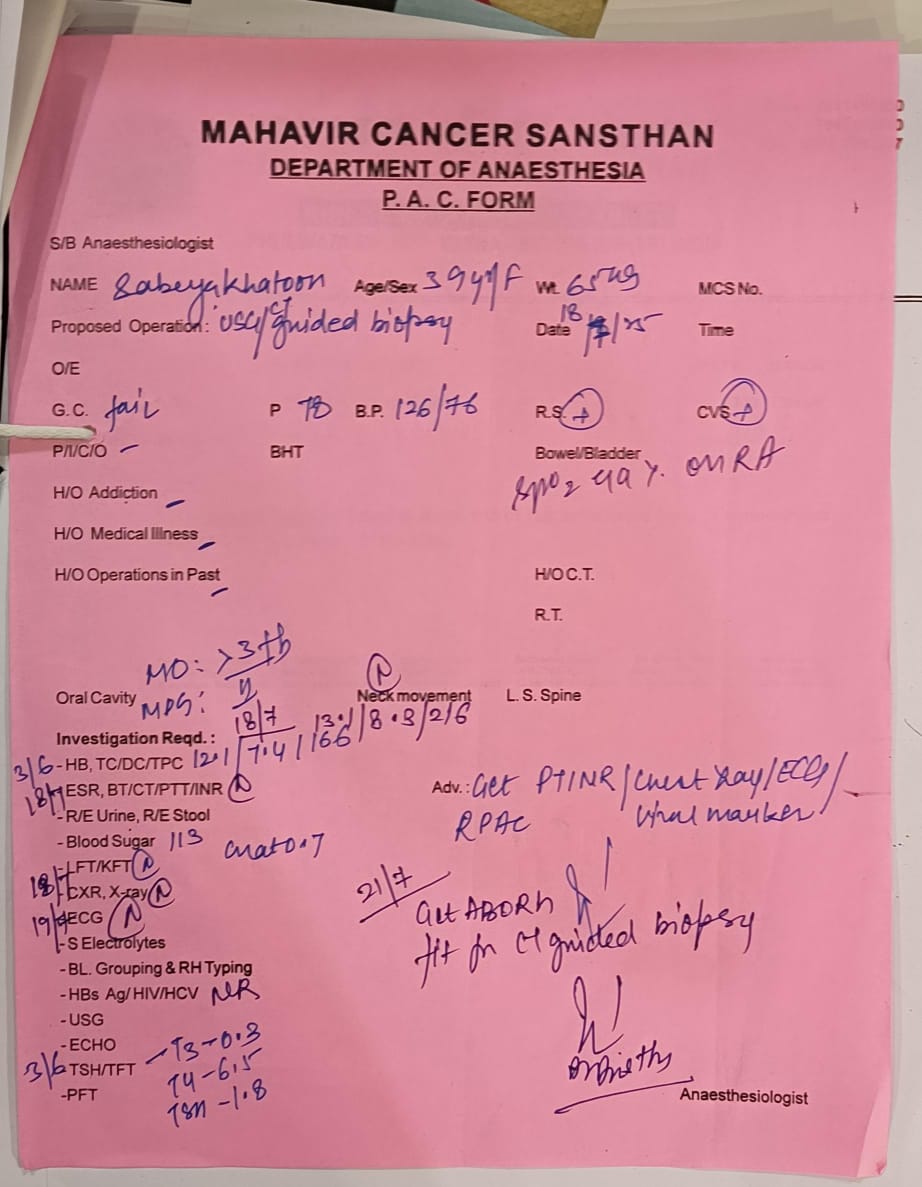 MAHAVIR CANCER SANSTHAN
DEPARTMENT OF ANAESTHESIA
P. A. C. FORM
S/B Anaesthesiologist
NAME Sabeyakhatoon Age/Sex 39y/F Wt. 65kg MCS No.
Proposed Operation: USG/CT guided biopsy Date 18/7/25 Time
O/E
G.C. fair P 78 B.P. 126/76 R.S. + CVS +
P/I/C/O - BHT Bowel/Bladder
SPO2 99%. on RA
H/O Addiction -
H/O Medical Illness -
H/O Operations in Past - H/O C.T.
R.T.
MO: >3fb
Oral Cavity MPS: N Neck movement L. S. Spine
18/7 13.1/8.8/216
Investigation Reqd.:
3/6 -HB, TC/DC/TPC 12.1/7.4/166
18/7 ESR, BT/CT/PTT/INR N Adv.: Get PTINR/Chest Xray/ECG/
-R/E Urine, R/E Stool RPAC Viral marker
- Blood Sugar 113 creat 0.7
-LFT/KFT N
18/7 -CXR, X-ray N 21/7
19/7 ECG N Get ABORh
-S Electrolytes fit for CT guided biopsy
-BL. Grouping & RH Typing
-HBs Ag/ HIV/HCV NR
-USG
-ECHO
3/6 TSH/TFT - T3-0.3
T4-6.5
-PFT TSH-1.8
Anaesthesiologist